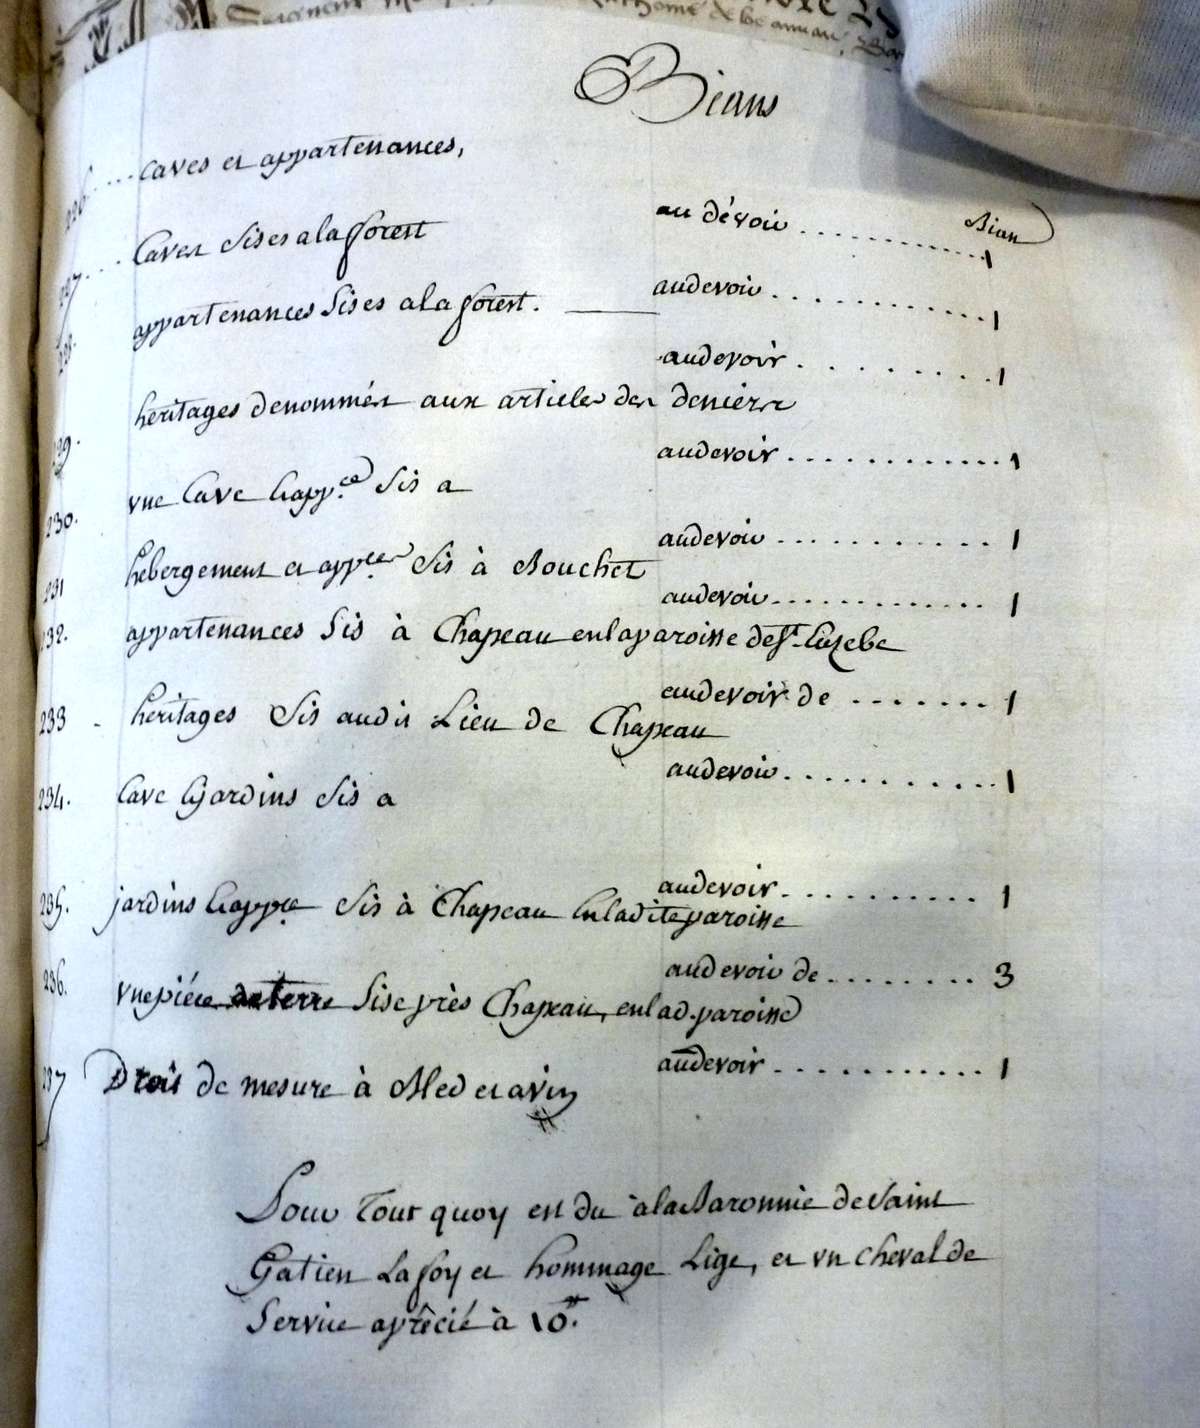 Bians
226 .... Caves et appartenances,
au dévoir ............ Bian 1
227 .... Caves Sises a la forest
au devoir ............ 1
228. appartenances Sises a la forest.
au devoir ............ 1
229. heritages denommés aux articles des deniers
au devoir ............ 1
230. vne Cave & app.ces Sis a
au devoir ............ 1
231 hebergement et app.ces Sis à Bouchet
au devoir ............ 1
232. appartenances Sis à Chapeau en la paroisse de St. Euzebe
au devoir de ....... 1
233 heritages Sis audit Lieu de Chapeau
au devoir ............ 1
234. Cave & jardins Sis a
au devoir ............ 1
235. jardins & app.ces Sis à Chapeau en ladite paroisse
au devoir de ........ 3
236. vne piéce de terre Sise près Chapeau, en lad. paroisse
au devoir ............ 1
237 Droit de mesure à Bled et a vin
Pour Tout quoy est du à la Baronnie de Saint
Gatien La foy et hommage Lige, et vn cheval de
Service aprêcié à 10.tt